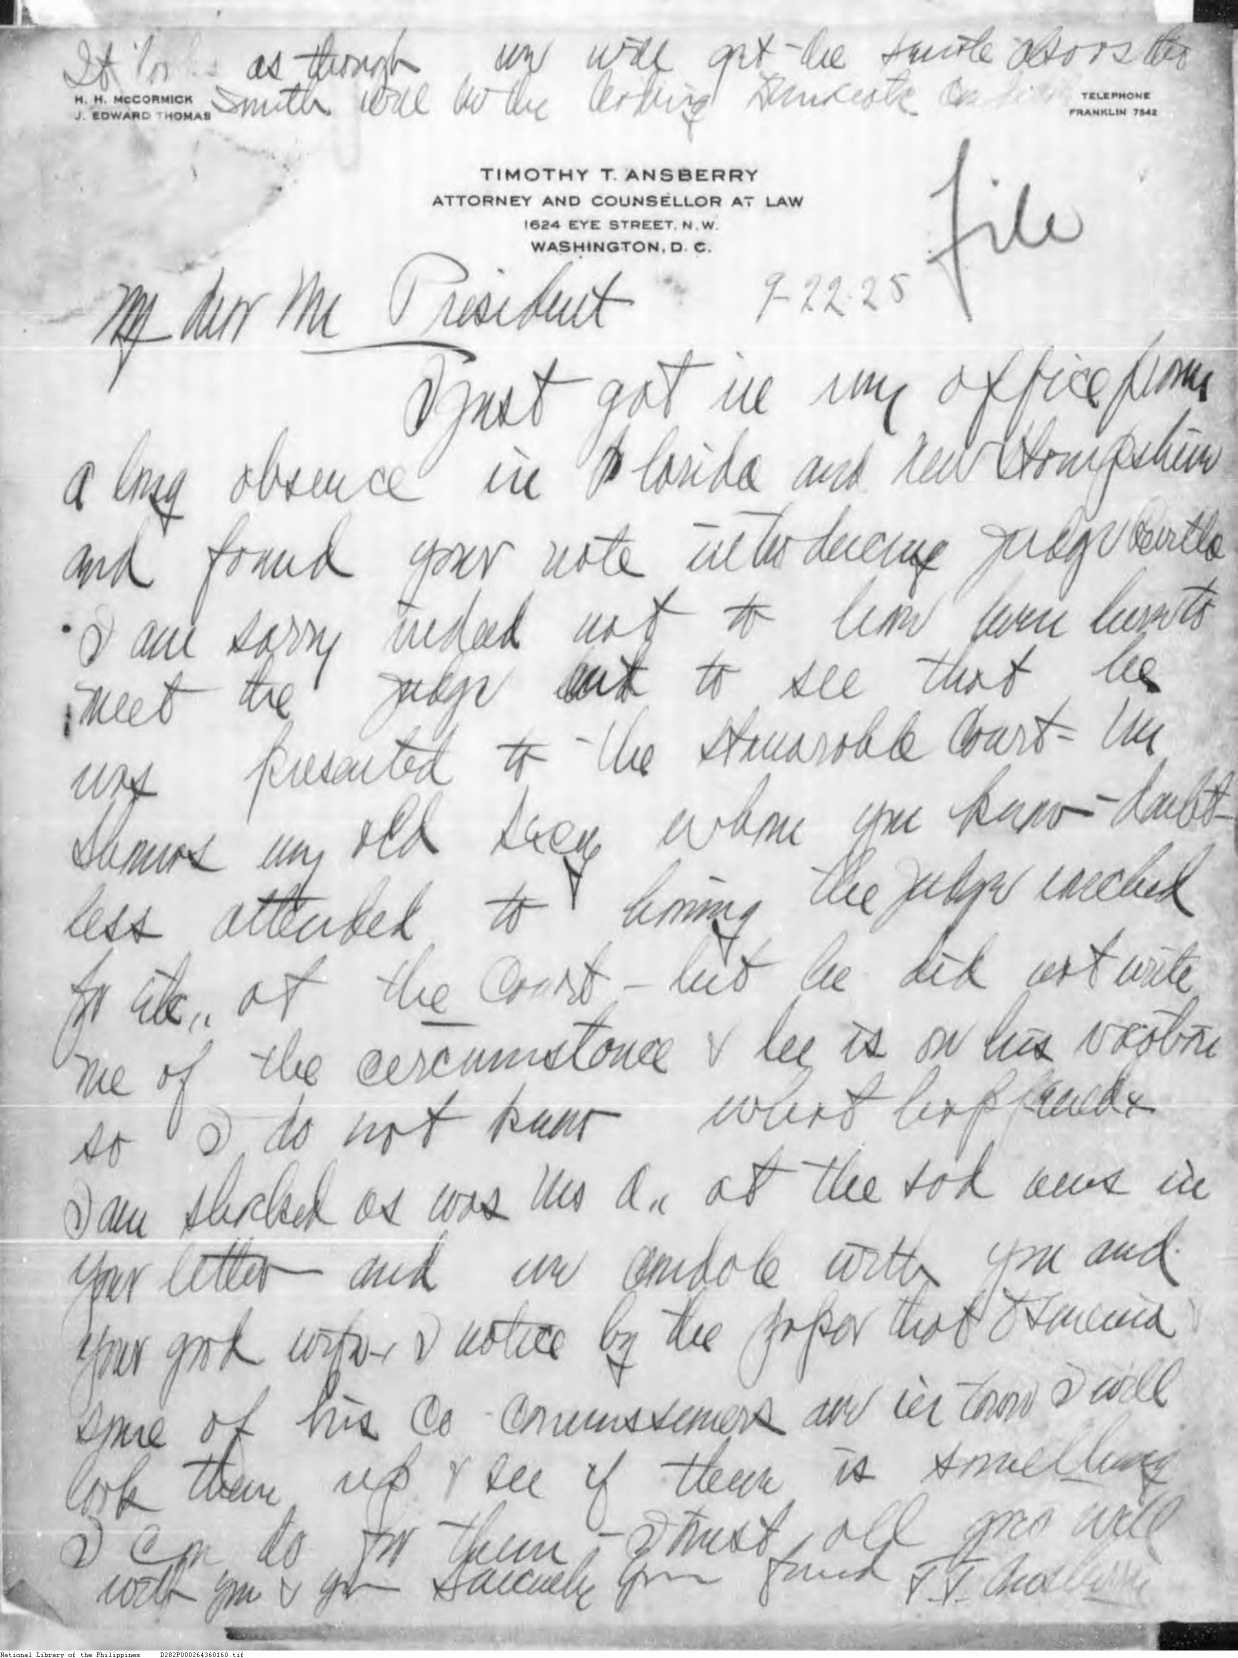 It looks as though we will get the Senate also
Smith will be the leading Democratic
H. H. McCORMICK
J. EDWARD THOMAS
TELEPHONE
FRANKLIN 7542
TIMOTHY T. ANSBERRY
ATTORNEY AND COUNSELLOR AT LAW
1624 EYE STREET, N.W.
WASHINGTON, D. C.
file
9-22-25
My dear Mr President
I just got in my office from
a long absence in Florida and New Hampshire
and found your note introducing Judge
I am sorry indeed not to have been here to
meet the judge and to see that he
was presented to the Honorable Court - Mr
my old Secy whom you know - doubt-
less attended to having the judge
for etc,, at the Court - but he did not write
me of the circumstance & he is on his vacation
so I do not know what happened &
I am shocked as was Mrs A,, at the sad news in
your letter - and we condole with you and
your good wife - I notice by the paper that Osmena &
some of his Co-Commissioners are in town I will
look them up & see if there is something
I can do for them - I trust all goes well
with you & your Sincerely your friend T. T. Ansberry
National Library of the Philippines D282P000264360160.tif